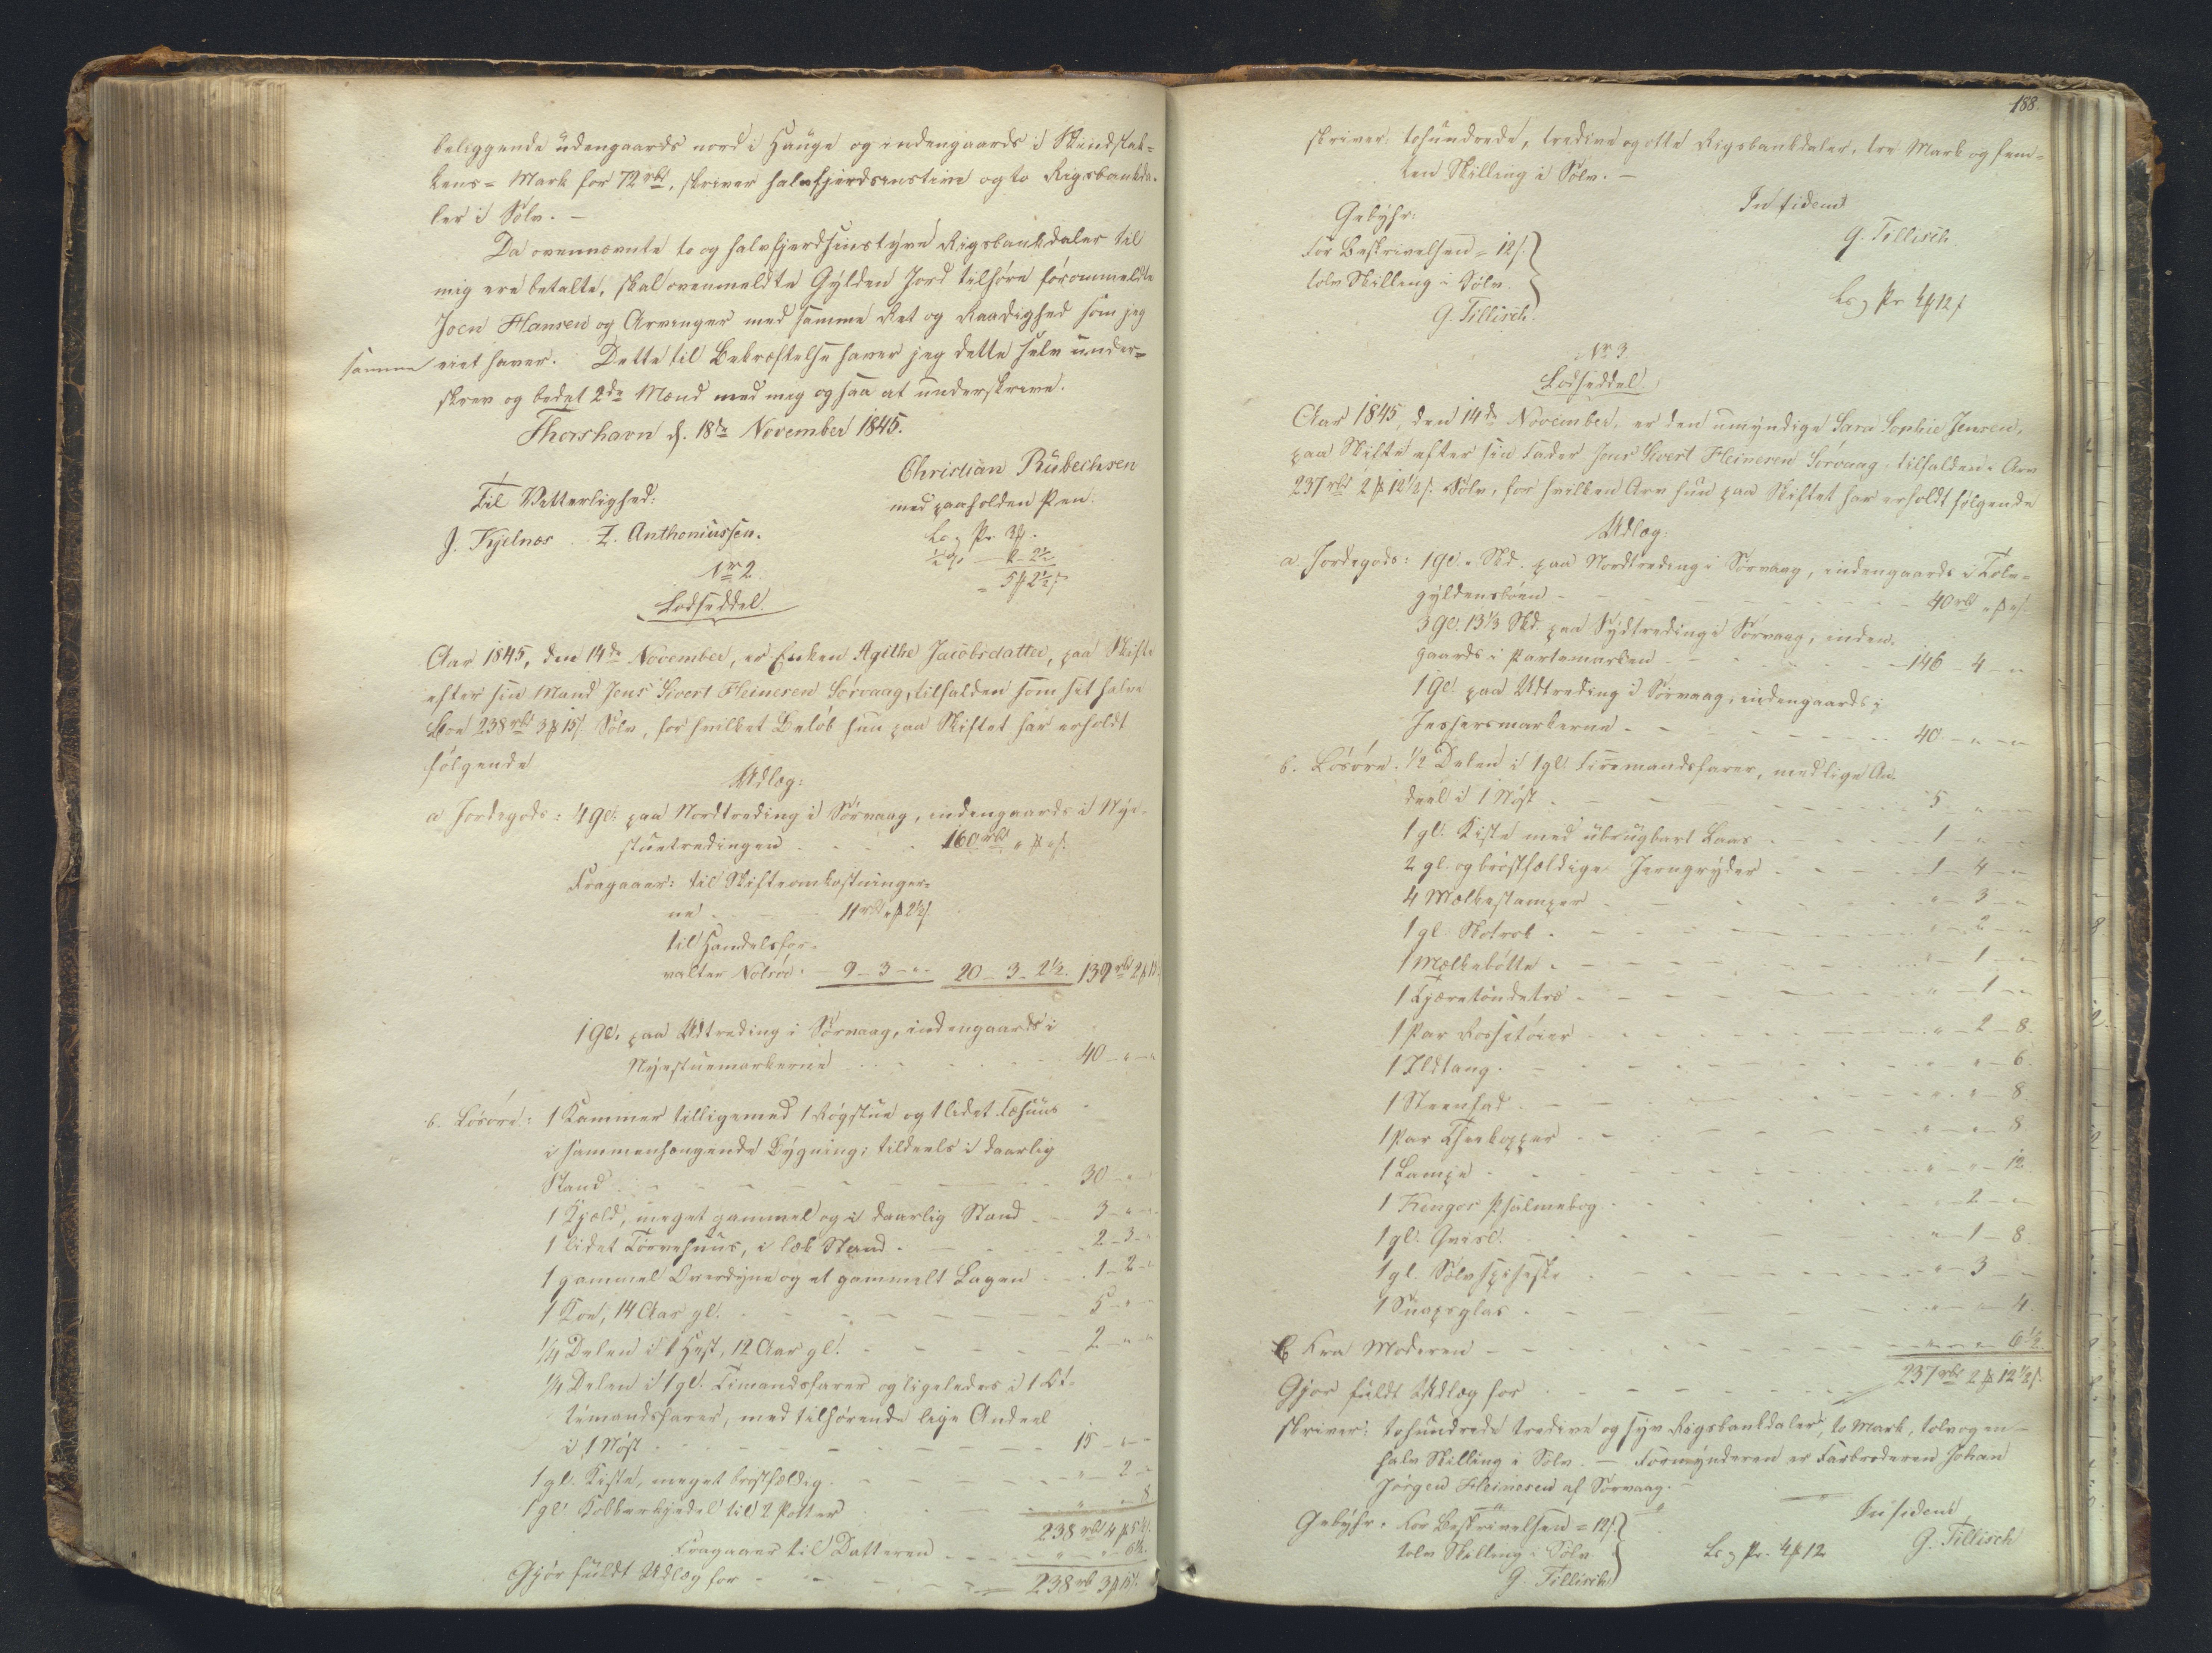 beliggende udengaards nord i Hauge og indengaards i Kiindstak-
kens- Mark for 72 rbd, skriver halvfjerdsenstive og to Rigsbankda-
ler i Sølv. —
Da ovennævnte to og halvfjerdsinstyve Rigsbankdaler til
mig ere betalte, skal ovenmeldte Gylden Jord tilhøre forommeldte
Joen Hansen og Arvinger med samme Ret og Raadighed som jeg
samme eiet haver. Dette til Bekræftelse haver jeg dette selv under-
skrev og bedet 2de Mænd med mig ogsaa at underskrive.
Thorshavn d. 18de November 1845.
Christian Rübechsen
med paaholden Pen.
Til Vitterlighed:
J. Kjelnæs Z. Anthoniussen.
Nr 2
Lodseddel.
Aar 1845, den 14de November, er Enken Agithe Jacobsdatter, paa Skifte
efter sin Mand Jens Sivert Heinesen Sørvaag, tilfalden som sit halve
Boe 238 rbd 3 ₻ 15 s. Sølv, for hvilket Beløb hun paa Skiftet har erholdt
følgende
Udlæg:
a. Jordegods: 4 Gl. paa Nordtreding i Sørvaag, indengaards i Nye-
stuetredingen - - - 160 rbd „ ₻ „ s.
Fragaaer: til Skifteomkostninger-
ne - - - 11 rbd „ ₻ 2½ s.
til Handelsfor-
valter Nolsøe: - 9 - 3 - „ - 20 - 3 - 2½. 139 rbd 2 ₻
1 Gl. paa Udtreding i Sørvaag, indengaards i
Nyestuemarkerne - - - 40 - „ - „
b. Løsøre: 1 Kammer tilligemed 1 Røgstue og 1 lidet Fæhuus
i sammenhængende Bygning; tildeels i daarlig
Stand - - - 30 - „ -
1 Hjæld, meget gammel og i daarlig Stand - - 3 - „ -
1 lidet Tørvehuus, i læk Stand - - - 2 - 3 - „
1 gammel Overdyne og et gammelt Lagen - - 1 - 2 - „
1 Koe, 14 Aar gl. - - - 5 - „ -
¼ Delen i 1 Hest, 12 Aar gl. - - - 2 - „ - „
¼ Delen i 1 gl. Timandsfarer og ligeledes i 1 Ot-
temandsfarer, med tilhørende lige Andeel
i 1 Nøst - - - 15 - „ -
1 gl. Kiste, meget brøstfældig - - - „ - 2 - „
1 gl. Kobberkjedel til 2 Potter - - - „ - „ - 8
238 rbd 4 ₻ 5½ s.
Fragaaer til Datteren - - - „ - „ - 6½.
Gjør fuldt Udlæg for - - - 238 rbd 3 ₻ 15 s.
188.
skriver: tohundrede, tredive og otte Rigsbankdaler, tre Mark og fem-
ten Skilling i Sølv. —
In fidem
G. Tillisch
Gebyhr:
for Beskrivelsen = 12 s.
tolv Skilling i Sølv.
G. Tillisch.
Nr 3.
Lodseddel.
Aar 1845, den 14de November, er den umyndige Sara Sophie Jensen,
paa Skifte efter sin Fader Jens Sivert Heinesen Sørvaag, tilfalden i Arv
237 rbd 2 ₻ 12½ s. Sølv, for hvilken Arv hun paa Skiftet har erholdt følgende
Udlæg:
a. Jordegods: 1 Gl. „ Skd. paa Nordtreding i Sørvaag, indengaards i Tolv-
gyldensbøen - - - 40 rbd „ ₻ „ s.
3 Gl. 13⅓ Skd. paa Sydtreding i Sørvaag, inden-
gaards i Partemarken - - - 146 - 4 - „
1 Gl. paa Udtreding i Sørvaag, indengaards i
Jessersmarkerne - - - 40 - „ - „
b. Løsøre: ½ Delen i 1 gl. Firemandsfarer, med lige An-
deel i 1 Nøst - - - 5 - „ - „
1 gl. Kiste med ubrugbart Laas - - - 1 - „ - „
2 gl. og brøstfældige Jerngryder - - - 1 - 4 - „
4 Mælkestamper - - - „ - 3 - „
1 gl. Slotrok - - - „ - 2 - „
1 Mælkebøtte - - - „ - 1 - „
1 Tjæretøndetræ - - - „ - 1 - „
1 Par Rossetøier - - - „ - 2 - 8.
1 Ildtang - - - „ - „ - 6.
1 Steenfad - - - „ - „ - 8.
1 Par Theekopper - - - „ - „ - 8
1 Lampe - - - „ - „ - 12.
1 Kingos Psalmebog - - - „ - 2 - „
1 gl. Hvisl. - - - „ - 1 - 8.
1 gl. Sølvspiseske - - - „ - 3 - „
1 Snapsglas - - - „ - „ - 4.
C. Fra Moderen - - - „ - „ - 6½.
Gjør fuldt Udlæg for - - - 237 rbd 2 ₻ 12½ s.
skriver: tohundrede tredive og syv Rigsbankdaler, to Mark, tolv og en
halv Skilling i Sølv. — Formynderen er Farbroderen Johan
Jørgen Heinesen af Sørvaag. —
In fidem
G. Tillisch
Gebyhr. For Beskrivelsen = 12 s.
tolv Skilling i Sølv.
G. Tillisch